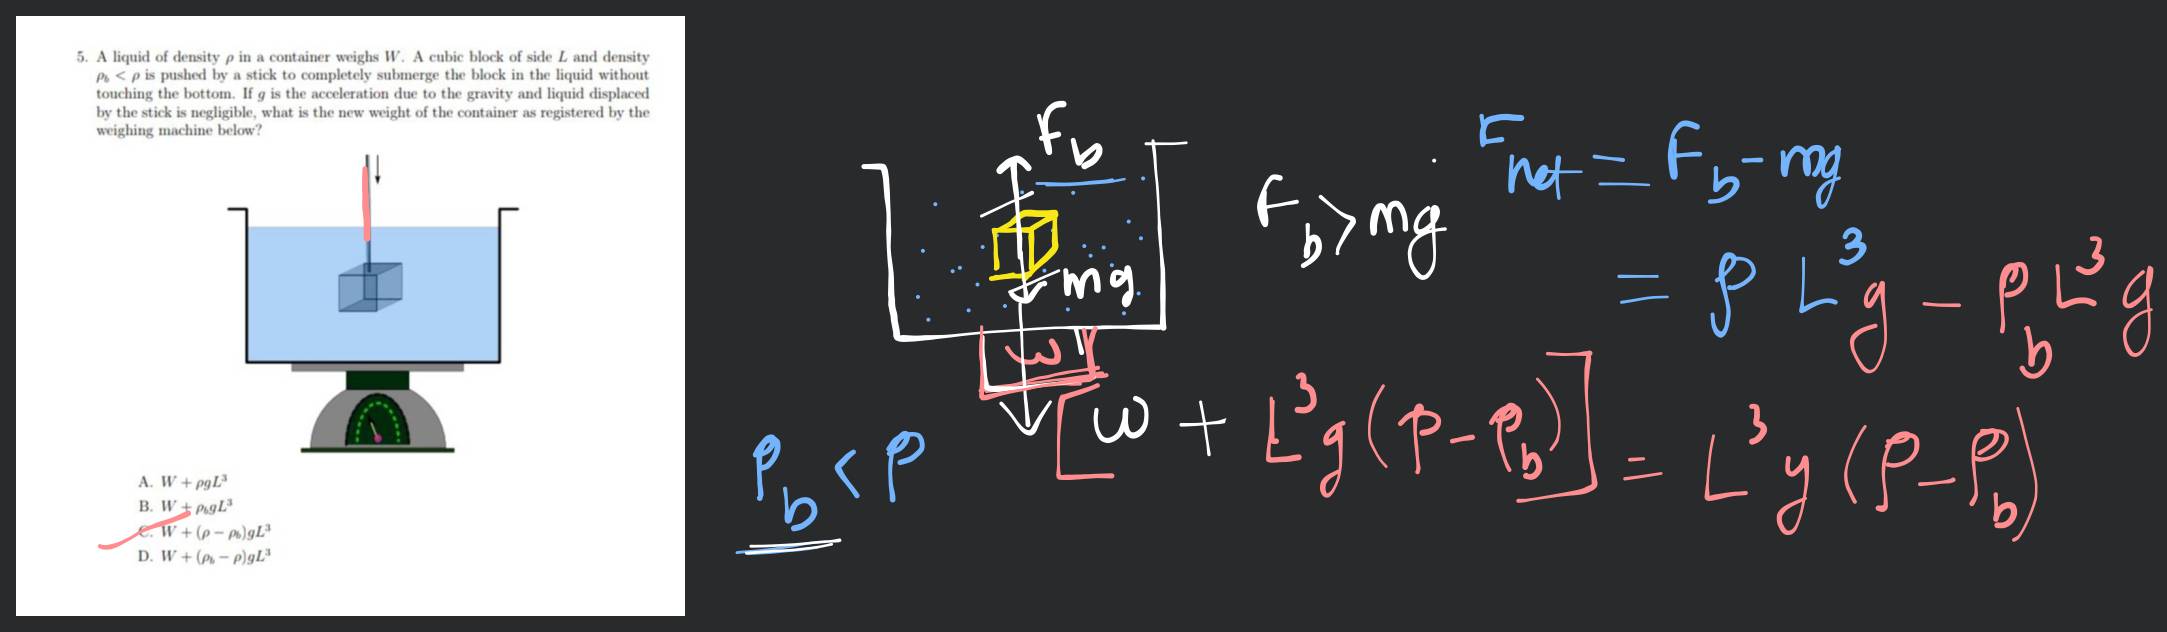 5. A liquid of density ρ in a container weighs W. A cubic block of side L and density
ρb < ρ is pushed by a stick to completely submerge the block in the liquid without
touching the bottom. If g is the acceleration due to the gravity and liquid displaced
by the stick is negligible, what is the new weight of the container as registered by the
weighing machine below?
A. W + ρgL³
B. W + ρbgL³
C. W + (ρ − ρb)gL³
D. W + (ρb − ρ)gL³
Fb
mg
W
Fb > mg
Fnet = Fb - mg
= ρ L³ g - ρb L³ g
= L³ g (ρ - ρb)
[W + L³ g (ρ - ρb)]
ρb < ρ